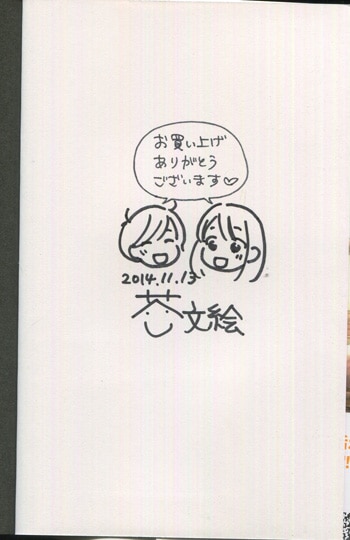 お買い上げ
ありがとう
ございます♡
2014.11.13
文絵